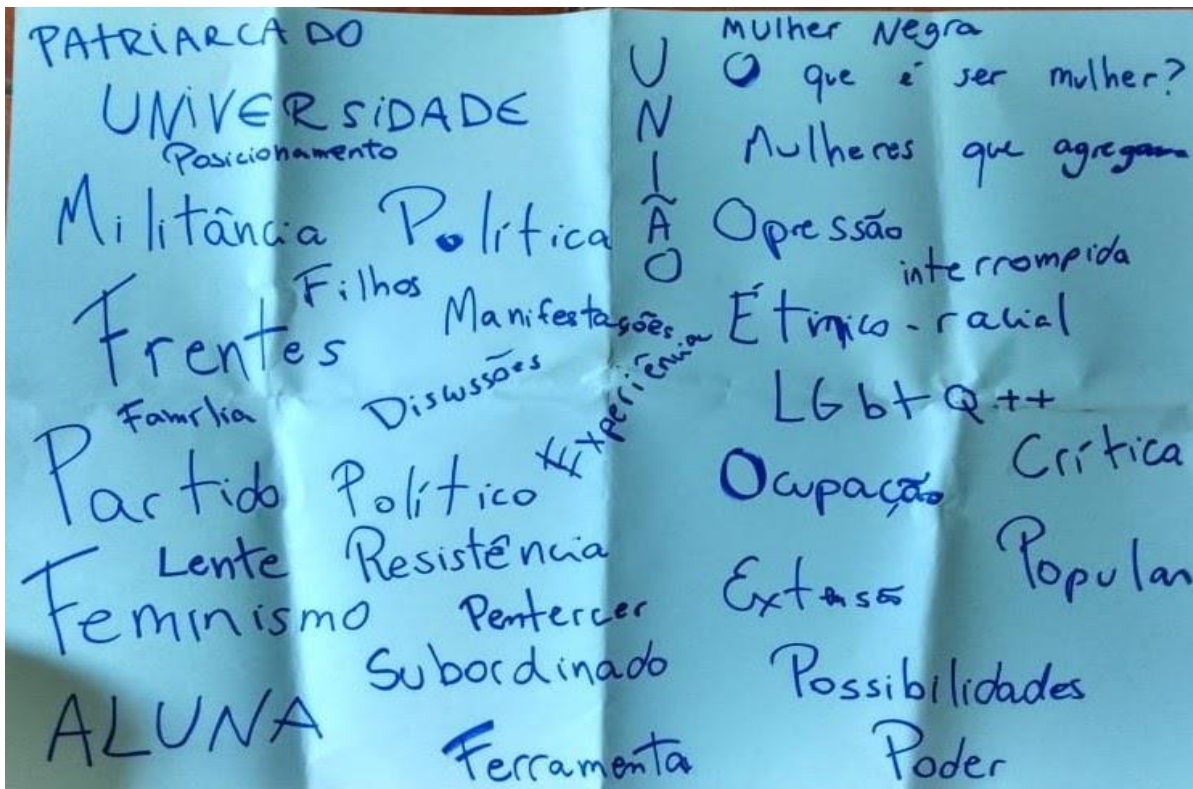 PATRIARCADO
UNIVERSIDADE
Posicionamento
Militância Política
Filhos
Frentes
Manifestações
Família
Discussões
Experiência
Partido Político
Lente Resistência
Feminismo
Pentercer
Subordinado
ALUNA
Ferramenta
UNIÃO
Mulher Negra
O que é ser mulher?
Mulheres que agregam
Opressão
interrompida
Étnico-racial
LGbtQ++
Crítica
Ocupação
Popular
Extensão
Possibilidades
Poder